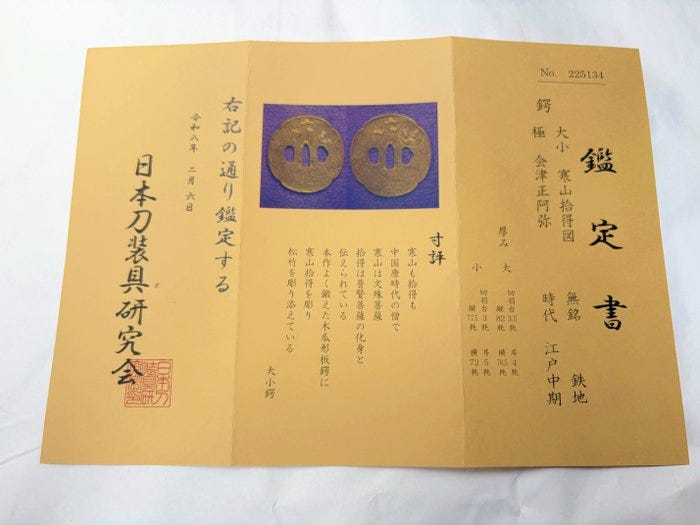 No. 225134
鑑定書
鍔 大小 寒山拾得図 無銘 鉄地
極 会津正阿弥 時代 江戸中期
厚み 大 切羽台3.5粍 耳4粍
縦82粍 横76.5粍
小 切羽台3粍 耳5粍
縦77.5粍 横72粍
寸評
寒山も拾得も
中国唐時代の僧で
寒山は文殊菩薩
拾得は普賢菩薩の化身と
伝えられている
本作よく鍛えた木瓜形板鍔に
寒山拾得を彫り
松竹を彫り添えている
大小鍔
右記の通り鑑定する
令和八年 二月 六日
日本刀装具研究会
日本刀
装具研
究会